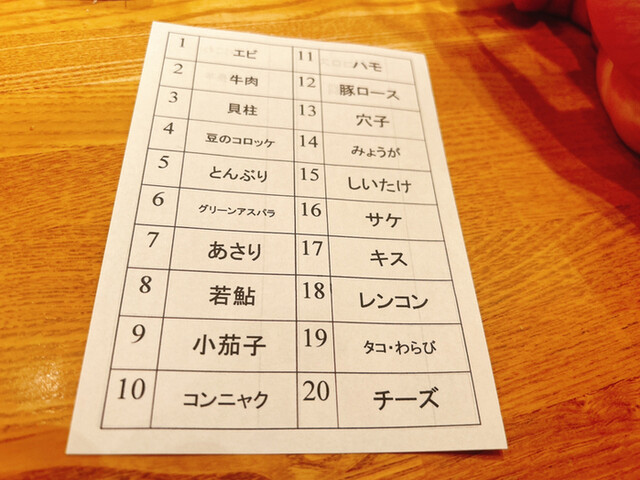 1 エビ 11 ハモ
2 牛肉 12 豚ロース
3 貝柱 13 穴子
4 豆のコロッケ 14 みょうが
5 とんぶり 15 しいたけ
6 グリーンアスパラ 16 サケ
7 あさり 17 キス
8 若鮎 18 レンコン
9 小茄子 19 タコ・わらび
10 コンニャク 20 チーズ